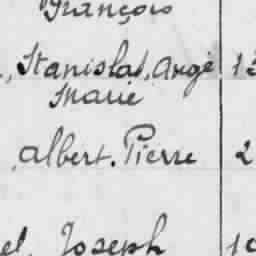 François
, Stanislas, Ange 13
Marie
, Albert. Pierre 2
el, Joseph 10